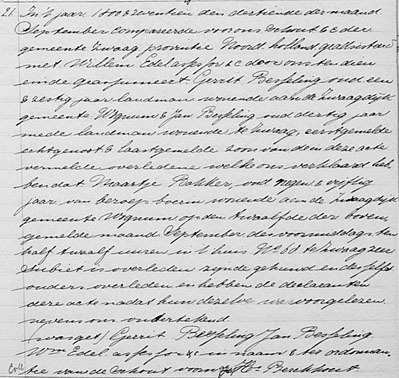 21. In 't jaar 1800 & zeventien den dertiende der maand
September compareerde voor ons Schout &c der
gemeente Zwaag provintie Noord holland geadsisteerd
met Willem Edel assessor &c door ons ten dien
einde geassumeert Gerrit Besseling oud een
& zestig jaar landman wonende aan de Zwaagdijk
gemeente Wognum & Jan Besseling oud dertig jaar
mede landman wonende te Zwaag, eerstgemelde
echtgenoot & laastgemelde zoon van de in deze acte
vermelde overledene welke ons verklaard heb
ben dat Maartje Rakker, oud negen & vyftig
jaar van beroep boerin wonende aan de Zwaagdijk
gemeente Wognum op den twaalfde der boven
gemelde maand September des voormiddags ten
half twaalf uuren in 't huis No 61 te Zwaag
subiet is overleden zynde gehuwd en deszelfs
ouders overleden en hebben de declaranten
deze acte nadat hun dezelve was voorgelezen
nevens ons ondertekend
(was get) Gerrit Besseling Jan Besseling
Wm Edel assessor &c in naam & ter ordonnan
tie van de Schout voorn.